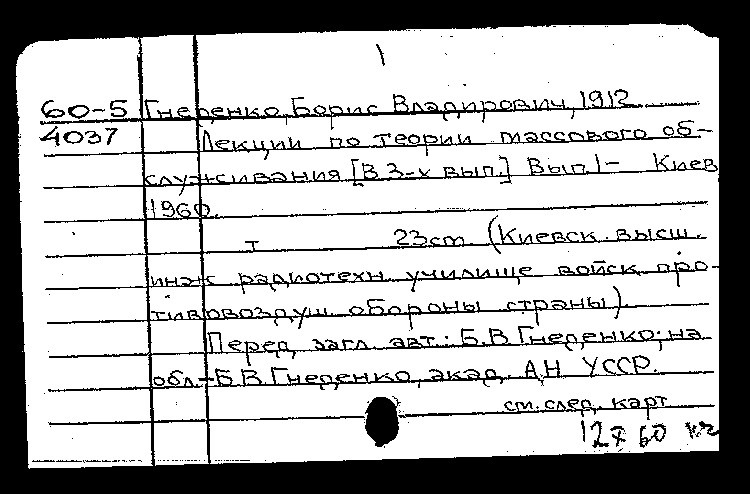 1
60-5 Гнеденко, Борис Владирович, 1912
4037 Лекции по теории массового об-
служивания [В 3-х вып.] Вып. 1- Киев
1960.
т 23cm (Киевск. высш.
инж радиотехн училище войск про-
тивовоздуш. обороны страны)
Перед загл. авт.: Б.В Гнеденко; на
обл.- Б.В. Гнеденко, акад. АН УССР.
см. след. карт
12 X 60 кг